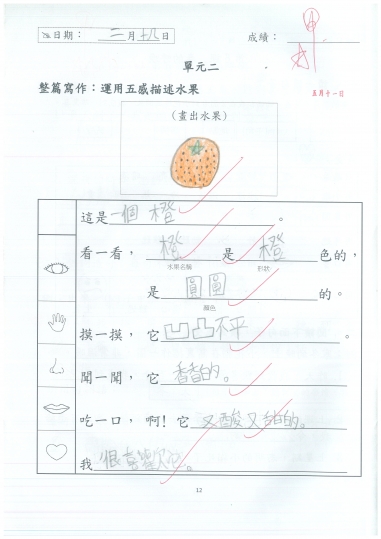 日期：二月十八日 成績：甲
單元二
整篇寫作：運用五感描述水果
五月十一日
（畫出水果）
這是一個橙。
看一看，橙是橙色的，
水果名稱 形狀
是圓圓的。
顏色
摸一摸，它凹凸不平。
聞一聞，它香香的。
吃一口，啊！它又酸又甜的。
我很喜歡吃。
12